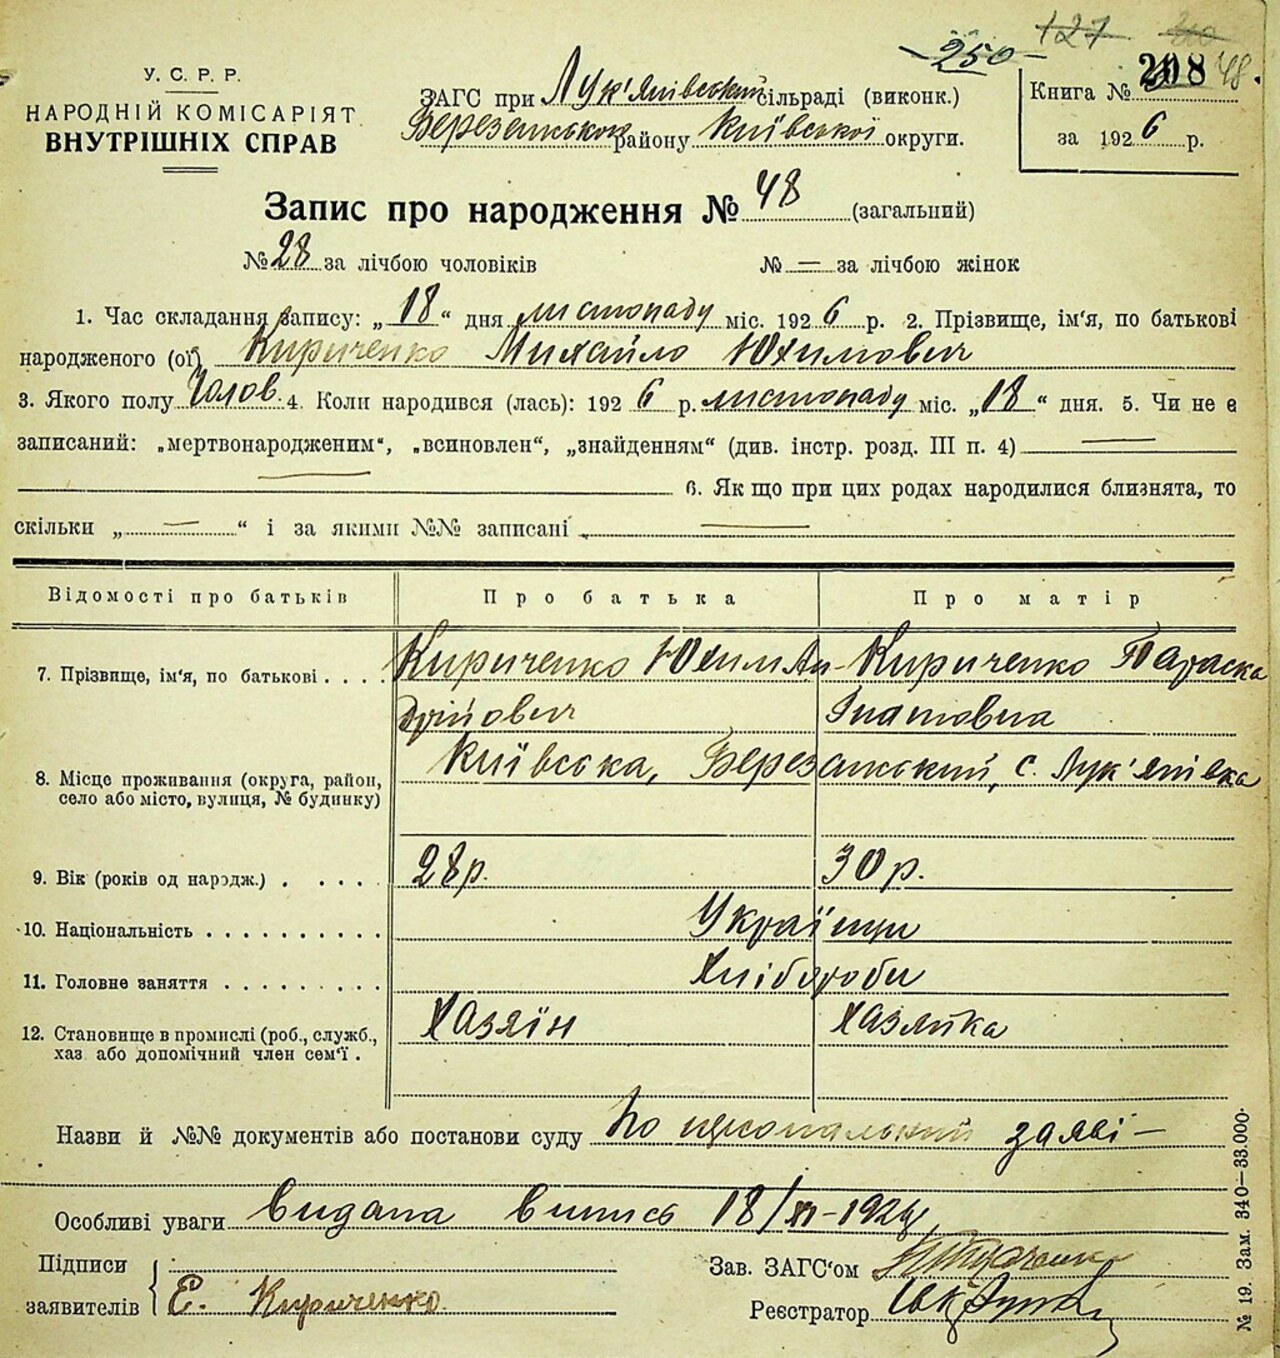 250 127
У. С. Р. Р.
НАРОДНІЙ КОМІСАРІЯТ
ВНУТРІШНІХ СПРАВ
ЗАГС при Лук'янівський сільраді (виконк.)
Березанського району Київської округи.
Книга № 208 48.
за 1926 р.
Запис про народження № 48 (загальний)
№ 28 за лічбою чоловіків № — за лічбою жінок
1. Час складання запису: „18“ дня листопаду міс. 1926 р. 2. Прізвище, ім'я, по батькові
народженого (ої) Кириченко Михайло Юхимович
3. Якого полу Чолов. 4. Коли народився (лась): 1926 р. листопаду міс. „18“ дня. 5. Чи не є
записаний: „мертвонародженим“, „всиновлен“, „знайденням“ (див. інстр. розд. III п. 4) —
— 6. Як що при цих родах народилися близнята, то
скільки „—“ і за якими №№ записані —
Відомості про батьків Про батька Про матір
7. Прізвище, ім'я, по батькові . . . . Кириченко Юхим Ан- Кириченко Параска
дрійович Гнатовна
8. Місце проживання (округа, район, Київська, Березанський, с. Лук'янівка
село або місто, вулиця, № будинку)
9. Вік (років од народж.) . . . . . 28 р. 30 р.
10. Національність . . . . . . . . . . Українци
11. Головне заняття . . . . . . . . . Хлібороби
12. Становище в промислі (роб., служб., Хазяїн Хазяйка
хаз. або допомічний член сем'ї .
Назви й №№ документів або постанови суду По персональний заяві —
Особливі уваги Видана випись 18/XI-1926
Підписи
заявителів Е. Кириченко
Зав. ЗАГС'ом
Реєстратор
№ 19. Зам. 340—33.000.